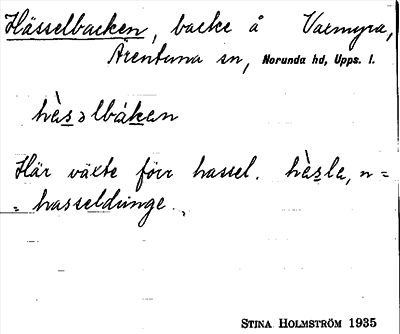 Hässelbacken, backe å Varmyra,
Ärentuna sn, Norunda hd, Upps. l.
hàsəlbákən
Här växte förr hassel. hàsla, n =
= hasseldunge.
STINA HOLMSTRÖM 1935